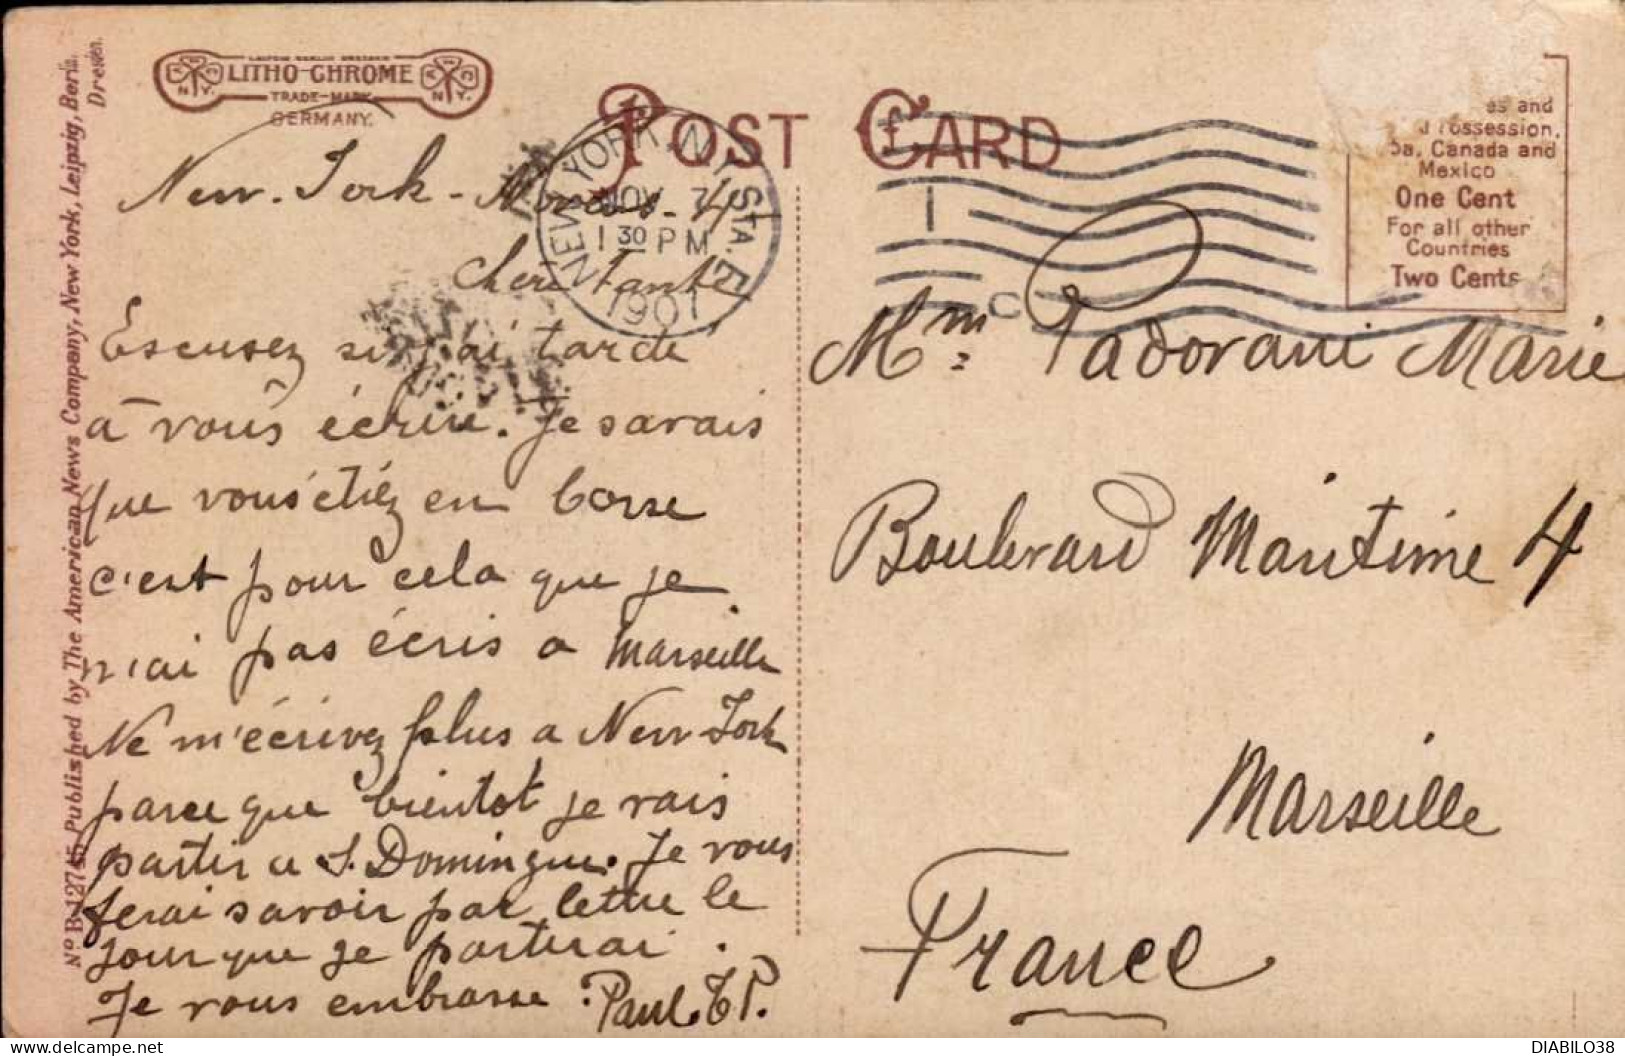 LITHO-CHROME
TRADE-MARK
GERMANY.
POST CARD
NEW YORK, N.Y. STA.
NOV 7
1 30 PM
1901
es and
Possession,
ba, Canada and
Mexico
One Cent
For all other
Countries
Two Cents
No B 12745 Published by The American News Company, New York, Leipzig, Berlin,
Dresden.
New-York-
Cheri tante
Escusez si j'ai tardé
a vous écrire. Je savais
que vous étiez en Corse
c'est pour cela que je
n'ai pas écris a Marseille
Ne m'écrivez plus a New York
parce que bientot je vais
partir a S. Domingue. Je vous
ferai savoir par lettre le
jour que je partirai.
Je vous embrasse. Paul T P.
Mme Padovani Marie
Boulevard Maritime 4
Marseille
France
DIABILO38